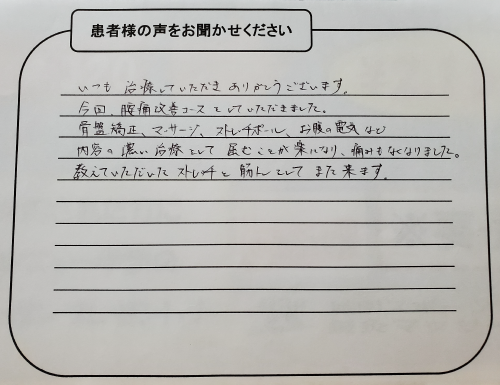 患者様の声をお聞かせください
いつも 治療していただき ありがとうございます。
今回、腰痛改善コースをしていただきました。
骨盤矯正、マッサージ、ストレッチポール、お腹の電気など
内容の濃い治療をして 屈むことが楽になり、痛みもなくなりました。
教えていただいた ストレッチと 筋トレをして また来ます。